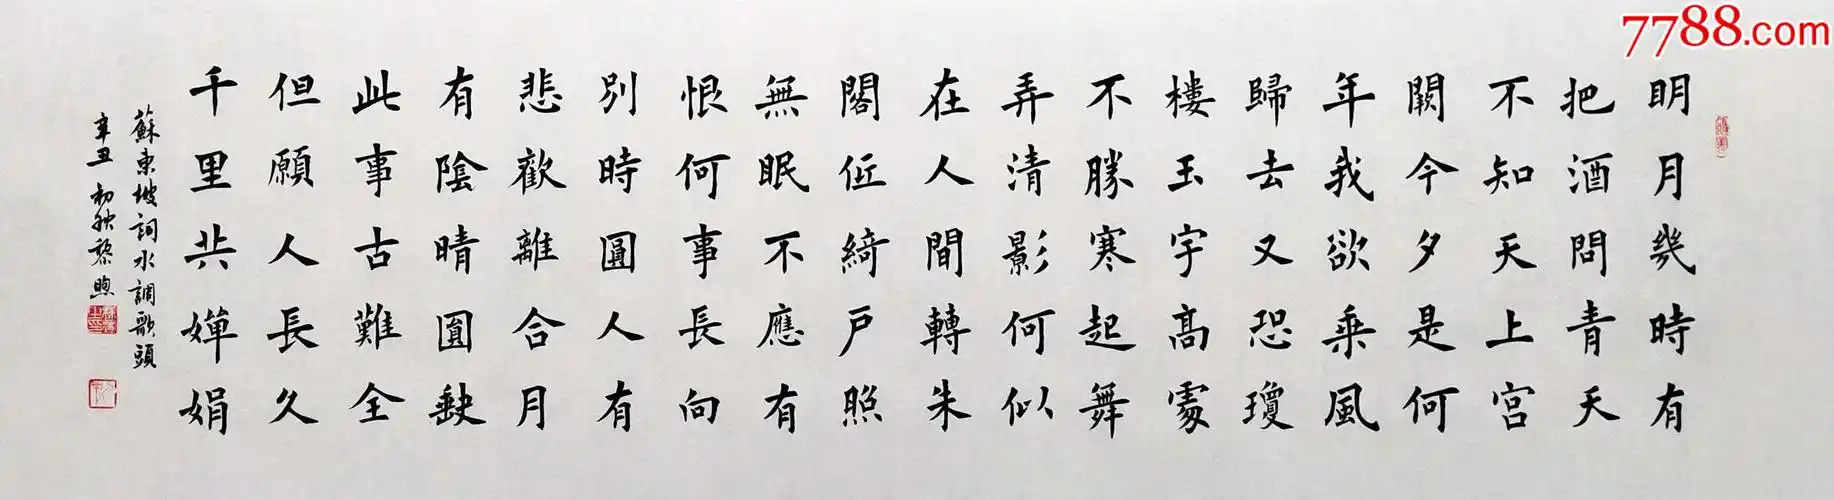 7788.com
明月幾時有
把酒問青天
不知天上宮
闕今夕是何
年我欲乘風
歸去又恐瓊
樓玉宇高處
不勝寒起舞
弄清影何似
在人間轉朱
閣低綺戶照
無眠不應有
恨何事長向
別時圓人有
悲歡離合月
有陰晴圓缺
此事古難全
但願人長久
千里共嬋娟
蘇東坡詞水調歌頭
辛丑初秋黎煦